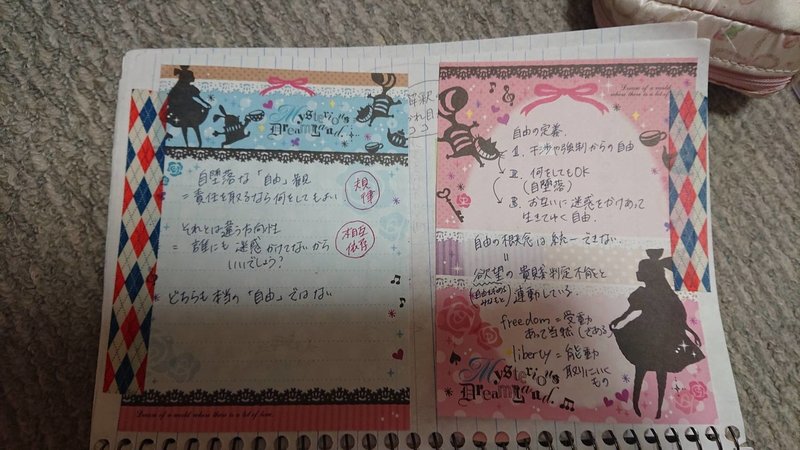 Mysterious
Dreamland.
自堕落な「自由」観
=責任を取るなら何をしてもよい
規律
それとは違う方向性
=誰にも迷惑かけてないから
いいでしょう?
相互
依存
どちらも本当の「自由」ではない
Dream of a world where there is a lot of love.
Dream of a world
where there is a lot of
自由の定義.
1. 干渉や強制からの自由
2. 何をしてもOK
(自堕落)
3. お互いに迷惑をかけあって
生きてゆく自由.
自由の概念は統一できない.
=
欲望の貴賤判定不能と
連動している.
freedom=受動
あって当然
liberty=能動
取りにいく
もの
Mysterious
Dreamland.